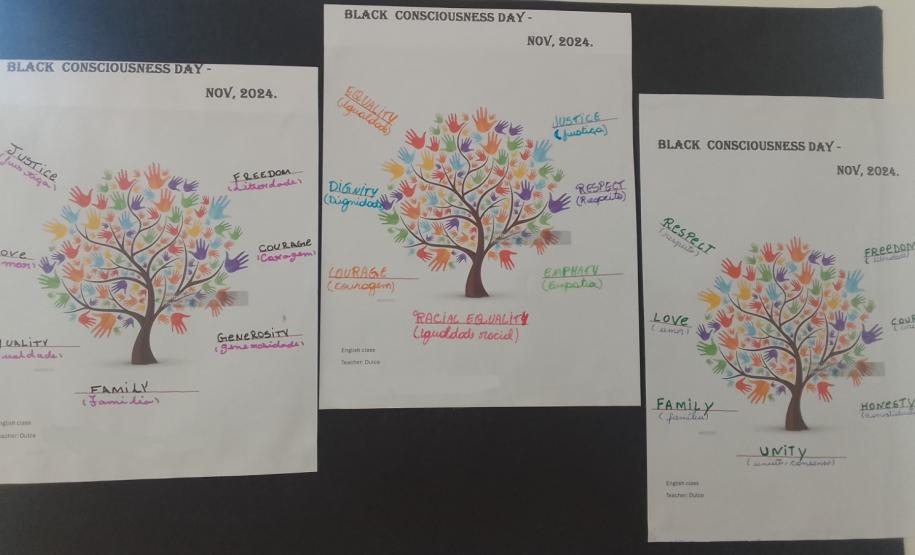 BLACK CONSCIOUSNESS DAY -
NOV, 2024.
JUSTICE
(Justiça)
FREEDOM
(Liberdade)
COURAGE
(Coragem)
GENEROSITY
(generosidade)
FAMILY
(Família)
English class
Teacher: Dulce
BLACK CONSCIOUSNESS DAY -
NOV, 2024.
EQUALITY
(Igualdade)
JUSTICE
(Justiça)
DIGNITY
(Dignidade)
RESPECT
(Respeito)
COURAGE
(Couragem)
EMPHATY
(Empatia)
RACIAL EQUALITY
(Igualdade racial)
English class
Teacher: Dulce
BLACK CONSCIOUSNESS DAY -
NOV, 2024.
RESPECT
(respeito)
FREEDOM
LOVE
(amor)
COUR
FAMILY
(família)
HONESTY
UNITY
(união, consenso)
English class
Teacher: Dulce